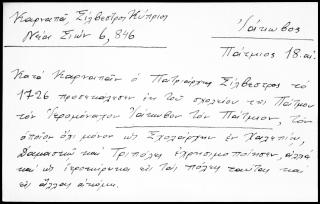 Καρναπᾶ, Σίλβεστρος Κύπριος
Νέα Σιών 6, 846
Ἰάκωβος
Πάτμιος 18. αἰ.
Κατὰ Καρναπᾶν ὁ Πατριάρχης Σίλβεστρος τὸ
1726 προσεκάλεσεν ἐκ τοῦ σχολείου τῆς Πάτμου
τὸν ἱερομόναχον Ἰάκωβον τὸν Πάτμιον, τὸν
ὁποῖον ὄχι μόνον ὡς Σχολάρχην ἐν Χαλεπίῳ,
Δαμασκῷ καὶ Τριπόλει ἐχρησιμοποίησεν, ἀλλὰ
καὶ ὡς ἱεροκήρυκα εἰς τὰς πόλεις ταύτας καὶ
εἰς ἄλλας ἀκόμη.